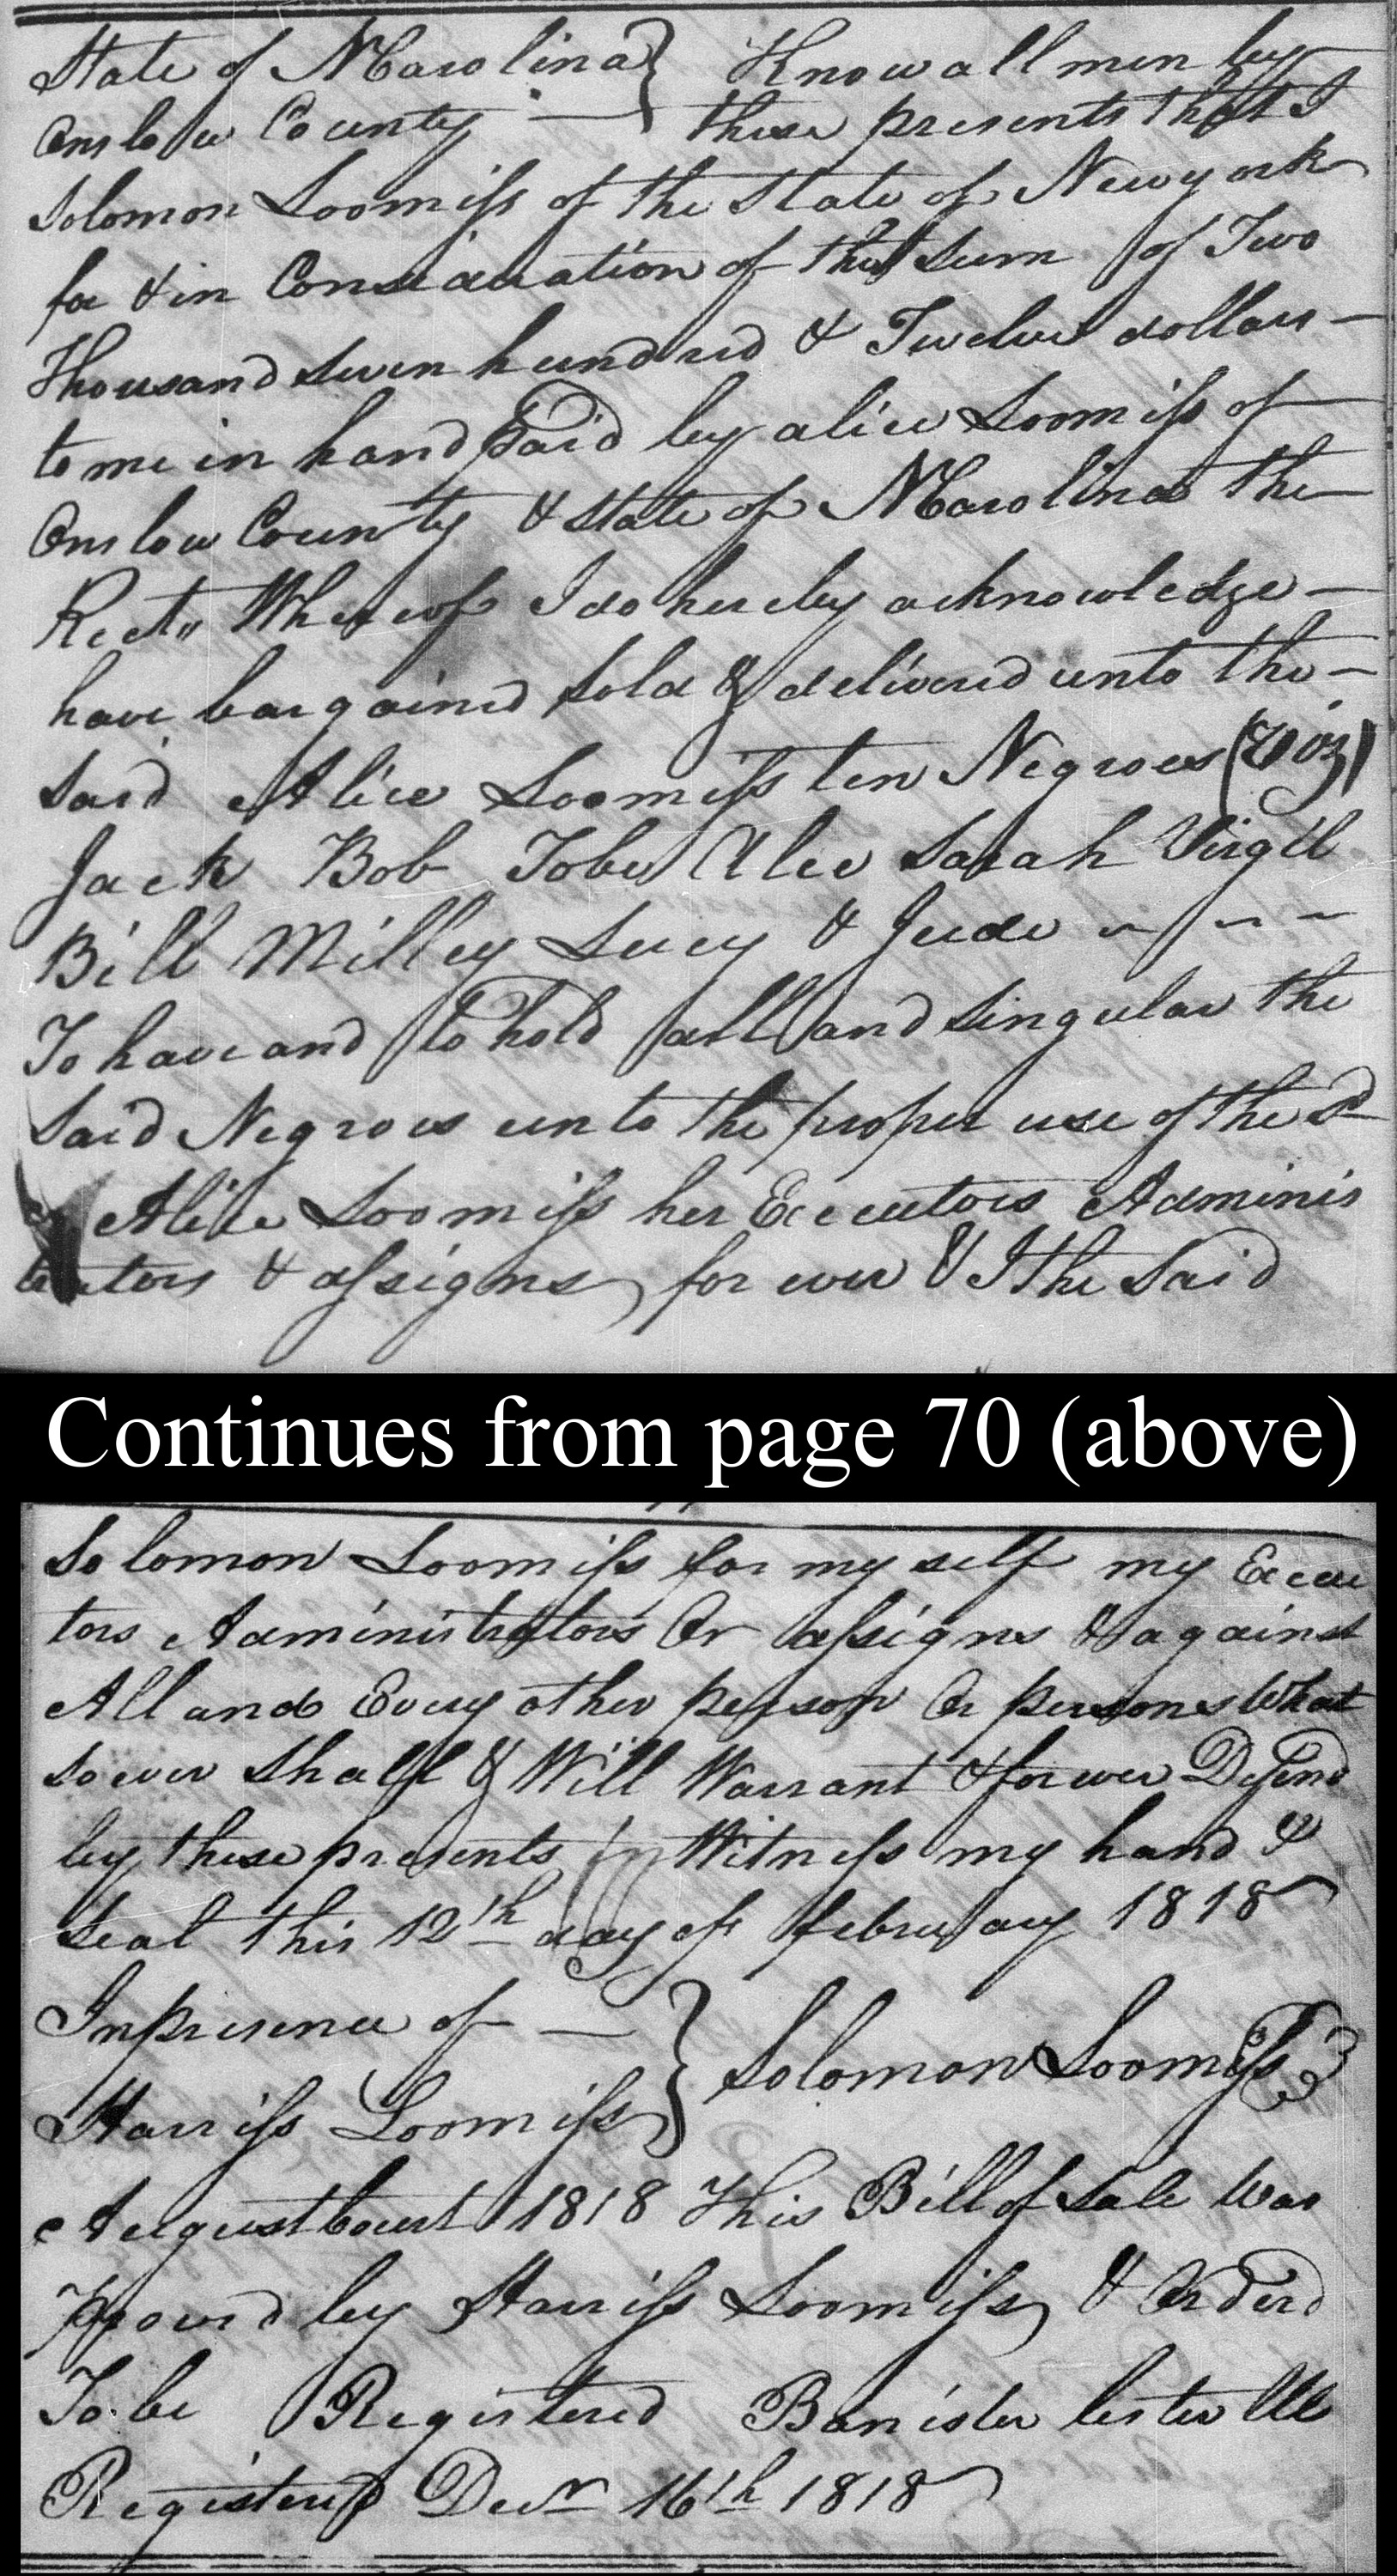 State of NCarolina } Know all men by
Onslow County — } these presents that I
Solomon Loomiss of the State of Newyork
for & in Consideration of the sum of Two
Thousand seven hundred & Twelve dollars —
to me in hand Paid by alice Loomiss of
Onslow County & State of NCarolina the
Rect" Whereof I do hereby acknowledge —
have bargained sold & delivered unto the —
said Alice Loomiss ten Negroes (Viz)
Jack Bob Tobe Alee Sarah Virgil
Bill Milley Lucy & Jude ~ ~ ~
To have and to hold all and singular the
said Negroes unto the proper use of the sd
Alice Loomiss her Executors Adminis
trators & assigns for ever & I the said
Continues from page 70 (above)
Solomon Loomiss for my self my Execu
tors Administrators Or assigns & against
All and Every other person Or persons What
soever shall & Will Warrant & forever Defend
by these presents In Witness my hand &
seal this 12th day of february 1818
In presence of — } Solomon Loomiss
Harriss Loomiss }
August Court 1818 This Bill of Sale Was
prov'd by Harriss Loomiss & Orderd
To be Registered Banister Lester
Registered Decr 16th 1818